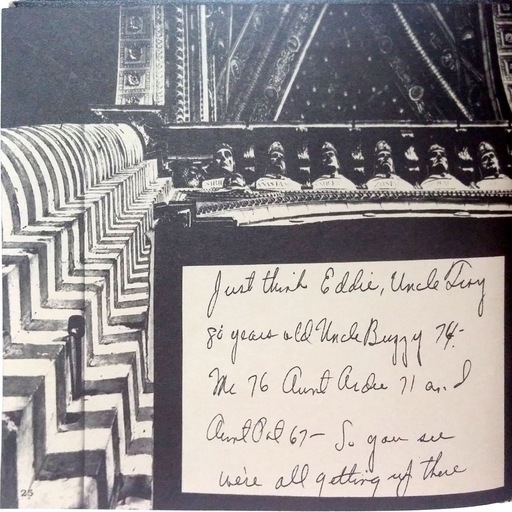 ANASTA
Just think Eddie, Uncle Tiny
80 years old Uncle Buzzy 74-
Me 76 Aunt Ardie 71 and
Aunt Pat 67- So you see
we're all getting up there
25